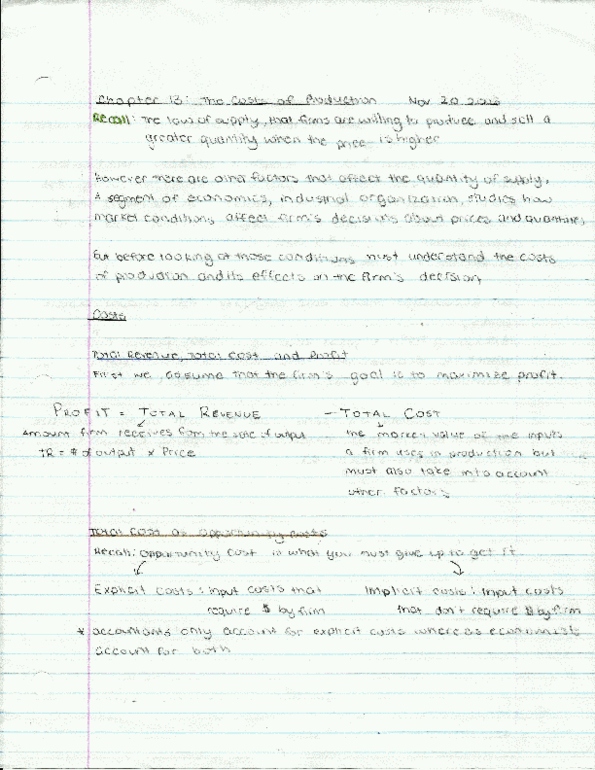 Chapter 13: The Costs of Production Nov 20
Recall: The law of supply, that firms are willing to produce and sell a
greater quantity when the price is higher
However there are other factors that affect the quantity of supply.
A segment of economics, industrial organization, studies how
market conditions affect firm's decisions about prices and quantities
But before looking at those conditions must understand the costs
of production and its effects on the firm's decision
Costs
Total Revenue, Total Cost and Profit
First we assume that the firm's goal is to maximize profit.
PROFIT = TOTAL REVENUE - TOTAL COST
Amount firm receives from the sale of output
TR = # of output x Price
the market value of the inputs
a firm uses in production but
must also take into account
other factors
Total Cost as Opportunity Costs
Recall: Opportunity cost is what you must give up to get it.
Explicit costs: input costs that
require $ by firm
Implicit costs: input costs
that don't require $ by firm
* accountants only account for explicit costs where as economists
account for both